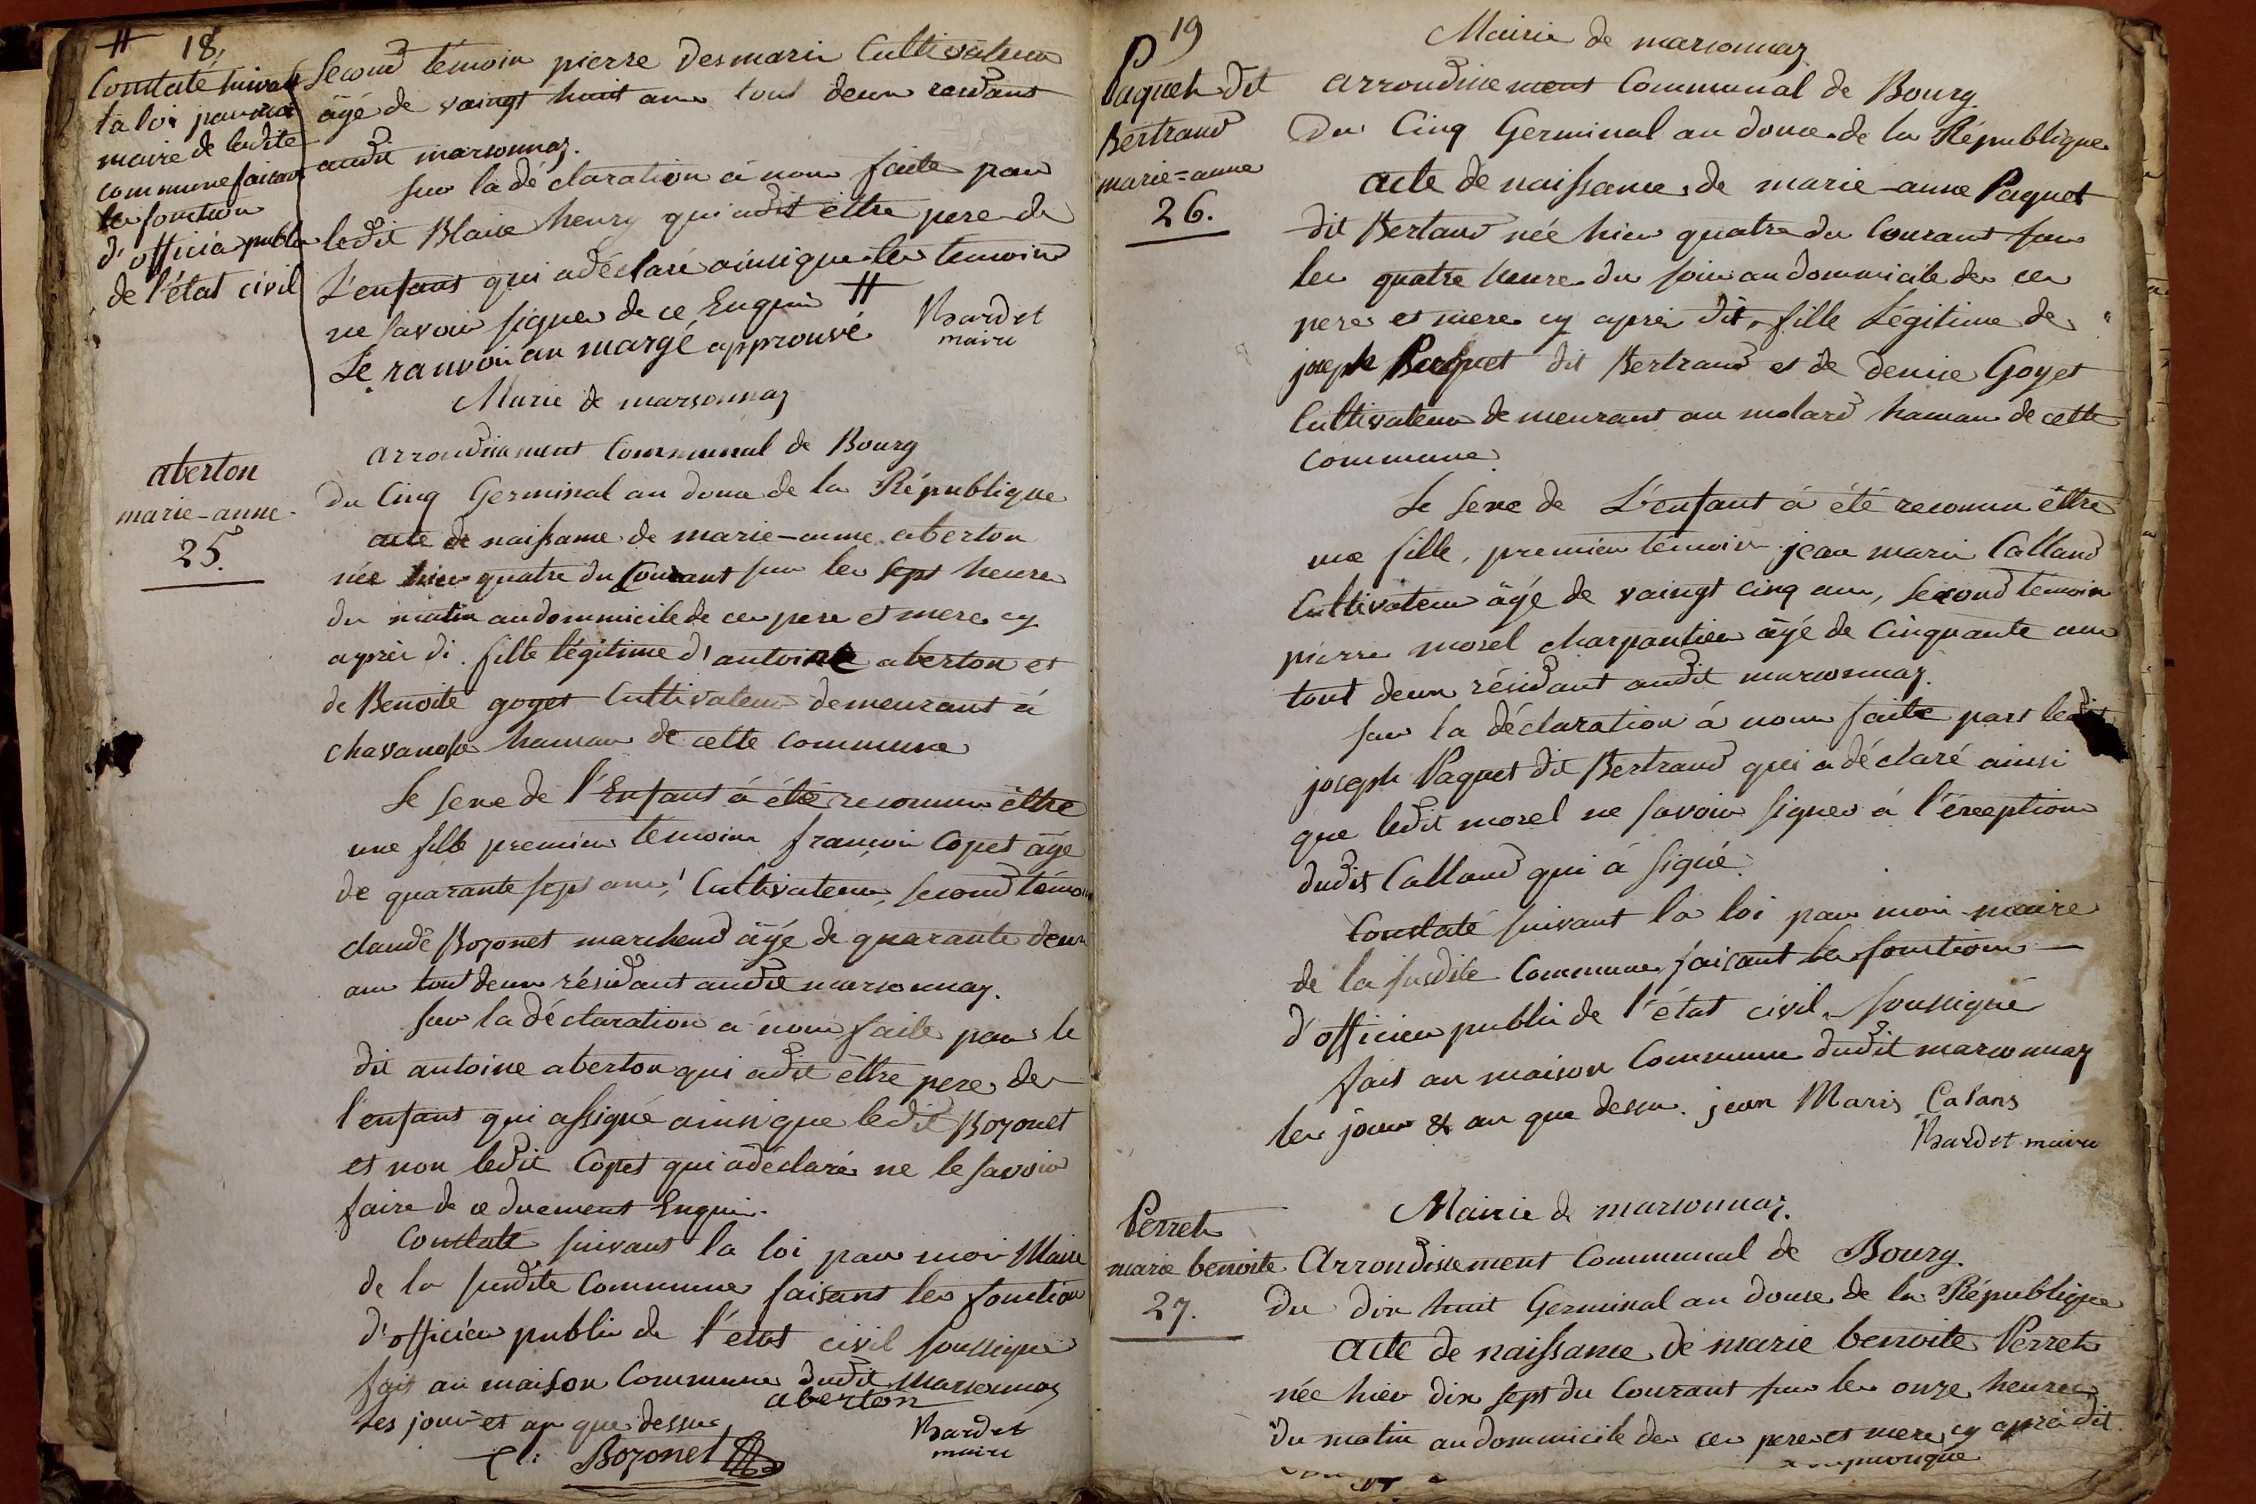 # 18,
Constaté suivant
la loi par moi
maire de ladite
commune faisant
les fonction
d'officier public
de l'état civil
Second témoin pierre Desmaris Cultivateur
âgé de vaingt huit ans tout deux residant
audit marsonnaz.
sur la déclaration à nous faite par
ledit Blaise henry qui adit ettre pere de
L'enfant qui adéclaré ainsi que les temoins
ne savoir signer de ce Enquis #
Le ranvoi an margé approuvé
maire
Mairie de marsonnaz
arrondissement Communal de Bourg
aberton
marie-anne
25.
du Cinq Germinal an douze de la République
acte de naissance de marie-anne aberton
née hier quatre du Courant sur les sept heures
du matin audommicile de ces pere et mere cy
après di. fille légitime d'antoine aberton et
de Benoite goyet Cultivateur demeurant à
chavanosse hamau de cette commune
Le sexe de l'Enfant à été reconnu ettre
une fille premier temoin francois Copet âgé
de quarante sept ans, Cultivateur, second témoin
claude Bozonet marchend âgé de quarante deux
ans tout deux résidant audit marsonnaz.
sur la déclaration a nous faite par le
dit antoine aberton qui adit ettre pere de
l'enfant qui assigné ainsi que ledit Bozonet
et non ledit Copet qui adéclaré ne le savoir
faire de ce duement Enquis.
Constaté suivant la loi par moi Maire
de la susdite Commune faisant les fonction
d'officier public de l'état civil soussigné
fait an maison Commune dudit marsonnaz
les jour et an que dessus
aberton
Bozonet
maire
19
Paquet dit
Bertrand
marie=anne
26.
Mairie de marsonnaz
arrondissement Communal de Bourg
Du Cinq Germinal an douze de la République
acte de naissance de marie-anne Paquet
dit Bertand née hier quatre du Courant sur
les quatre heures du soir au dommicile de ces
pere et mere cy après dit, fille Légitime de
joseph Paquet dit Bertrand et de denise Goyet
Cultivateur demeurant au molard hamau de cette
commune
Le sexe de L'enfant à été reconnu ettre
une fille, premier témoin jean marie Calland
Cultivateur âgé de vaingt cinq ans, second temoin
pierre morel charpantier âgé de Cinquante ans
tout deux résidant audit marsonnaz.
sur la déclaration à nous faite part ledit
joseph Paquet dit Bertrand qui a déclaré ainsi
que ledit morel ne savoir signer à l'exception
dudit Calland qui à signé.
Constaté suivant la loi par moi maire
de la susdite Commune faisant les fonctions
d'officier public de l'état civil soussigné
fait an maison Commune dudit marsonnaz
les jour & an que dessu. jean Maris Calans
maire
Perret
marie benoite
27.
Mairie de marsonnaz.
Arrondissement Communal de Bourg.
Du dix huit Germinal an douze de la République
acte de naissance de marie benoite Perret
née hier dix sept du Courant sur les onze heures
du matin au dommicile de ces pere et mere cy après dit